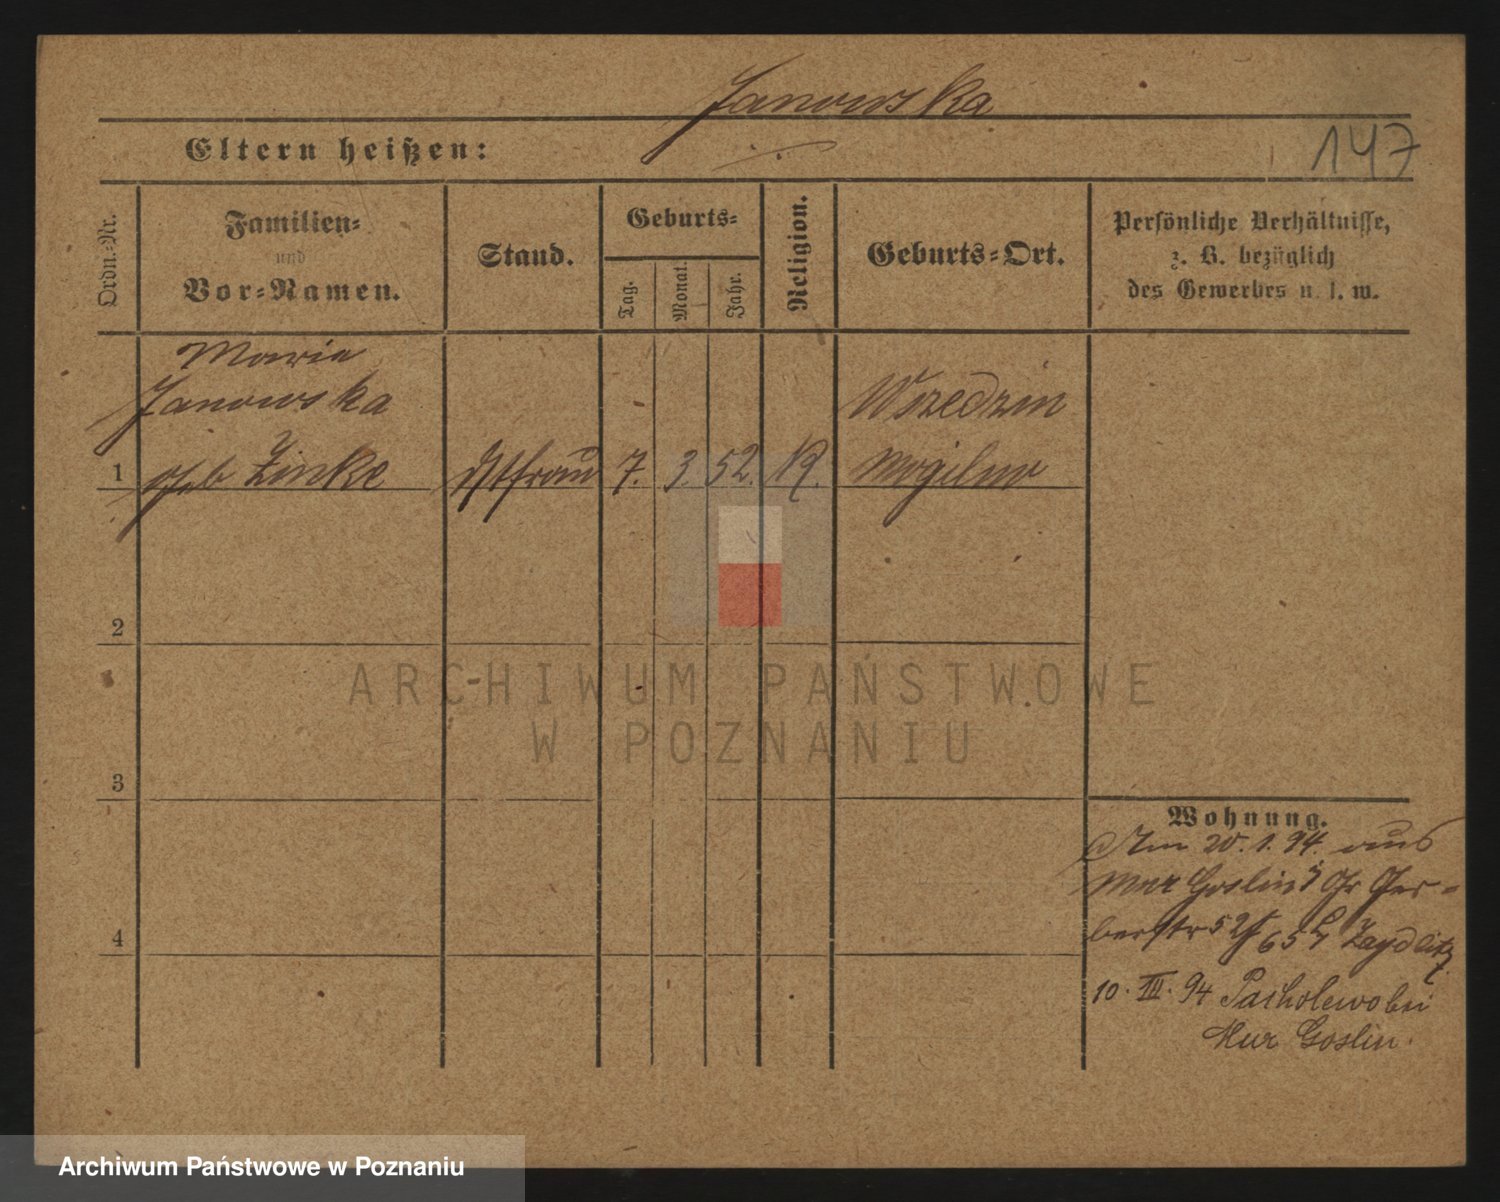 Janowska
Eltern heißen:
147
Ordn.-Nr.
Familien-
und
Vor-Namen.
Stand.
Geburts-
Tag.
Monat.
Jahr.
Religion.
Geburts-Ort.
Persönliche Verhältnisse,
z. B. bezüglich
des Gewerbes u. s. w.
Marie
Janowska
1 geb Zinke 7. 3. 52. K. Mogilno
2
3
4
ARCHIWUM PAŃSTWOWE
W POZNANIU
Wohnung.
Am 20. 1. 94. aus
Mur Goslin Gr Ger-
berstr 52 Zaydlitz
10. III. 94 Pacholewo bei
Mur Goslin.
Archiwum Państwowe w Poznaniu